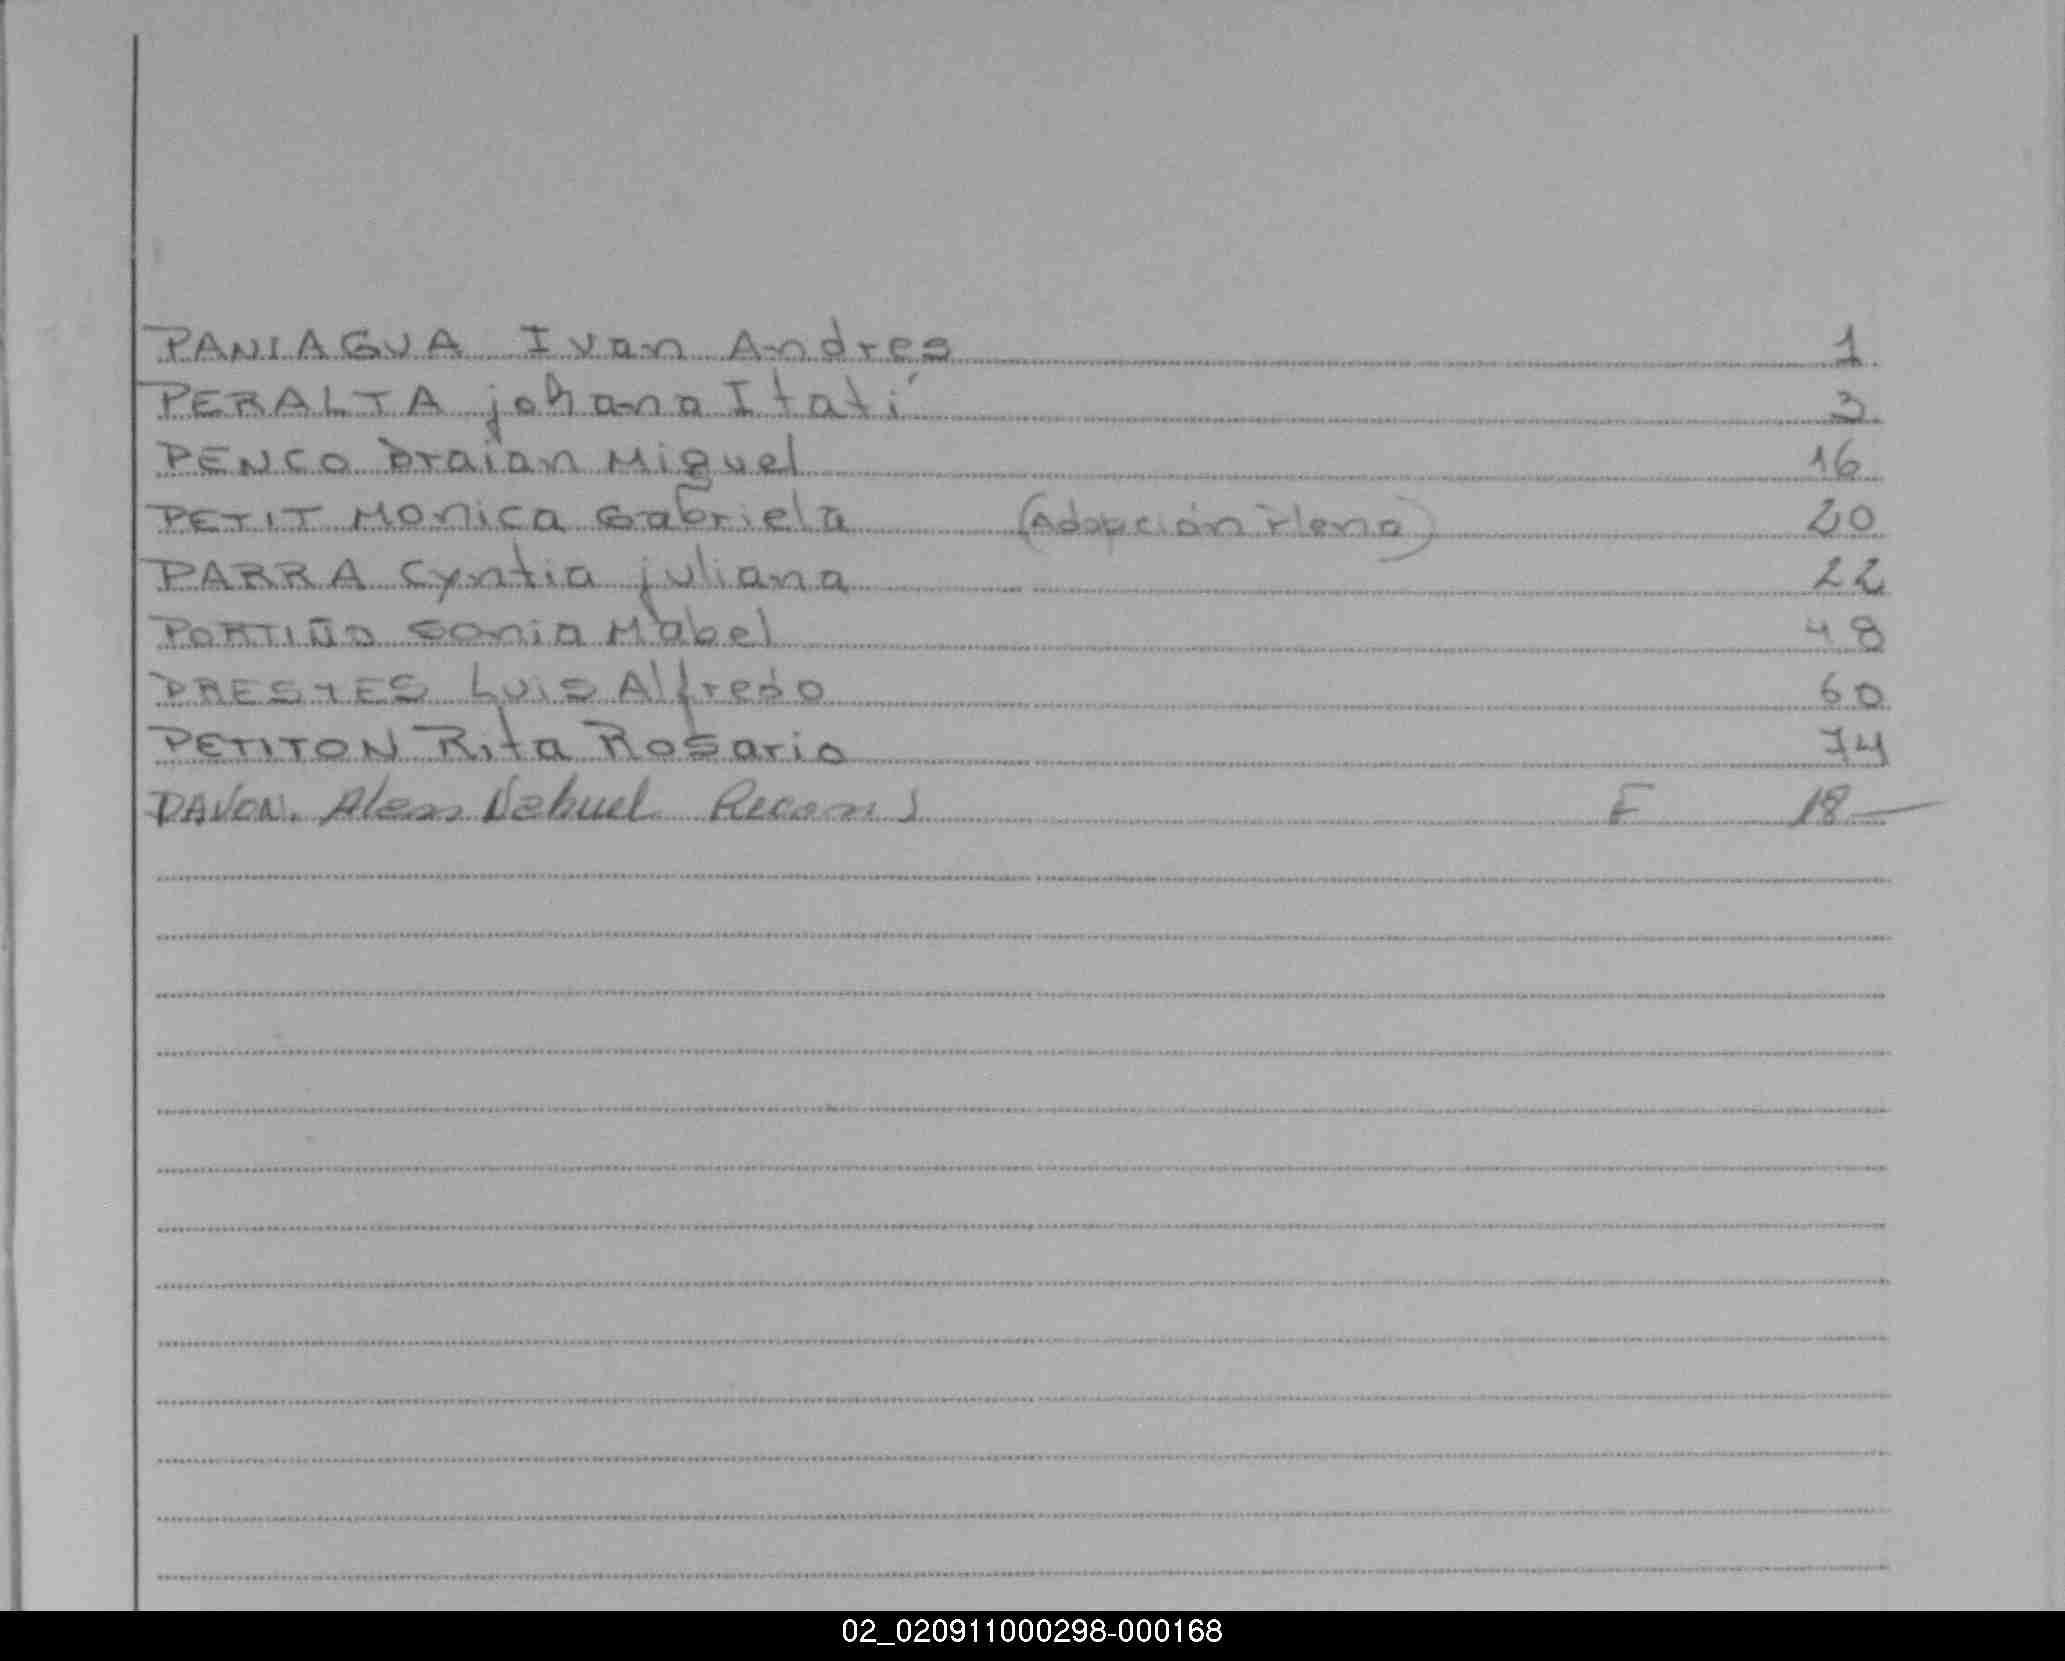 PANIAGUA Ivan Andres 1
PERALTA johana Itatí 3
PENCO Braian Miguel 16
PETIT Monica Gabriela (Adopción Plena) 20
PARRA Cyntia juliana 22
PORTIÑO Sonia Mabel 48
PRESTES Luis Alfredo 60
PETITON Rita Rosario 74
PAVON. Nehuel F 18
02_020911000298-000168